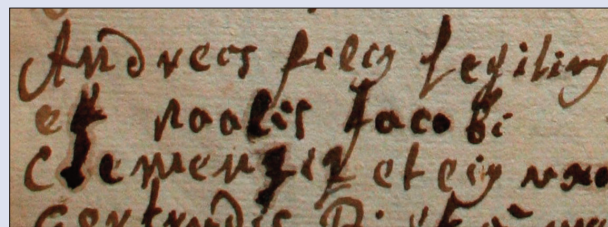 Andrees filius legitimus
et naalis Jacobi
Clementis et eius uxo
Gertrudis